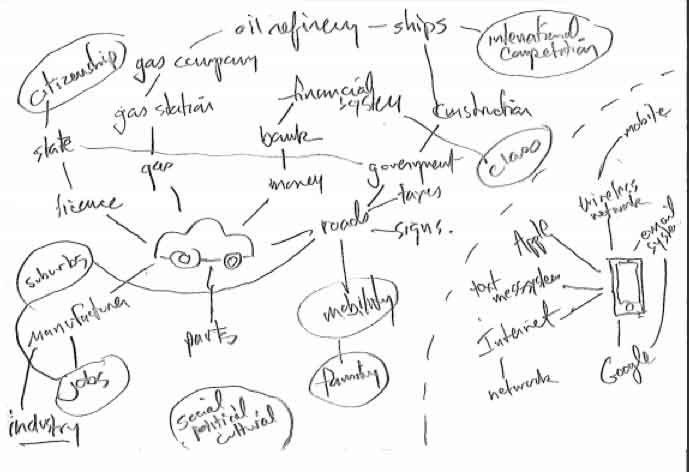 oil refinery – ships
International
Competition
citizenship
gas company
financial
system
gas station
construction
state
bank
gas
government
class
money
licence
taxes
roads
signs.
suburbs
manufacturer
mobility
parts
jobs
family
industry
social
political
cultural
mobile
wireless
network
email
system
Apple
text
messsystem
Internet
network
Google